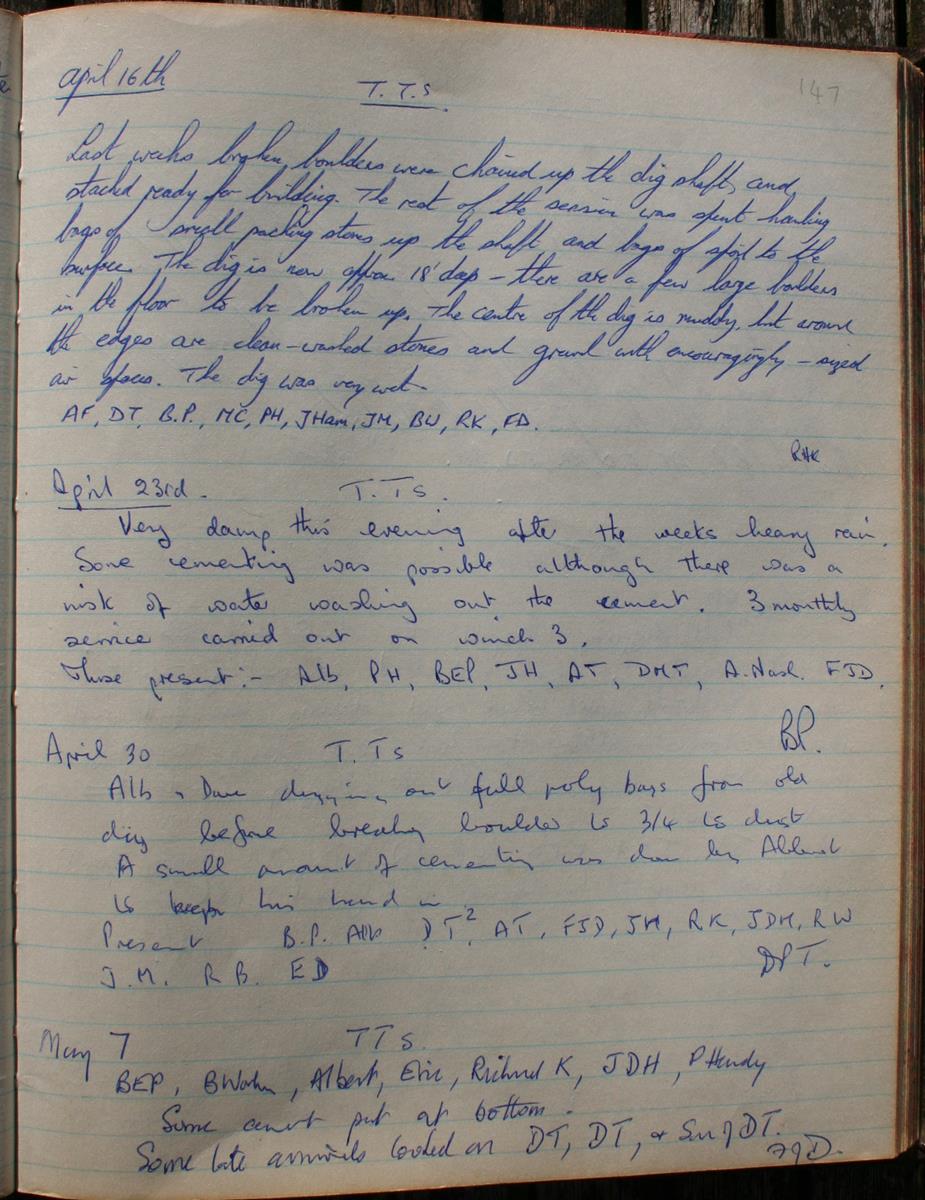 147
april 16th T.T.S
Last weeks broken boulders were chained up the dig shaft and
stacked ready for building. The rest of the session was spent hauling
bags of small packing stones up the shaft and bags of spoil to the
surface. The dig is now approx 18' deep – there are a few large boulders
in the floor to be broken up. The centre of the dig is muddy, but around
the edges are clean-washed stones and gravel with encouragingly-sized
air spaces. The dig was very wet
AF, DT, B.P., MC, PH, JHam, JM, BW, RK, FD.
RHK
April 23rd. T.TS.
Very damp this evening after the weeks heavy rain.
Some cementing was possible although there was a
risk of water washing out the cement. 3 monthly
service carried out on winch 3.
Those present:- Alb, PH, BEP, JH, AT, DMT, A.Nash. FJD.
BP.
April 30 T.TS
Alb & Dave digging out full poly bags from old
dig before breaking boulder to 3/4 to dust
A small amount of cementing was done by Albert
to keep his hand in.
Present B.P. Alb DT², AT, FJD, JH, RK, JDH, RW
J.M. R B. ED
DPT.
May 7 TTS.
BEP, BWorkn, Albert, Eric, Richard K, JDH, P Hendy
Some cement put at bottom.
Some late arrivals looked on DT, DT, & Son of DT.
FJD.